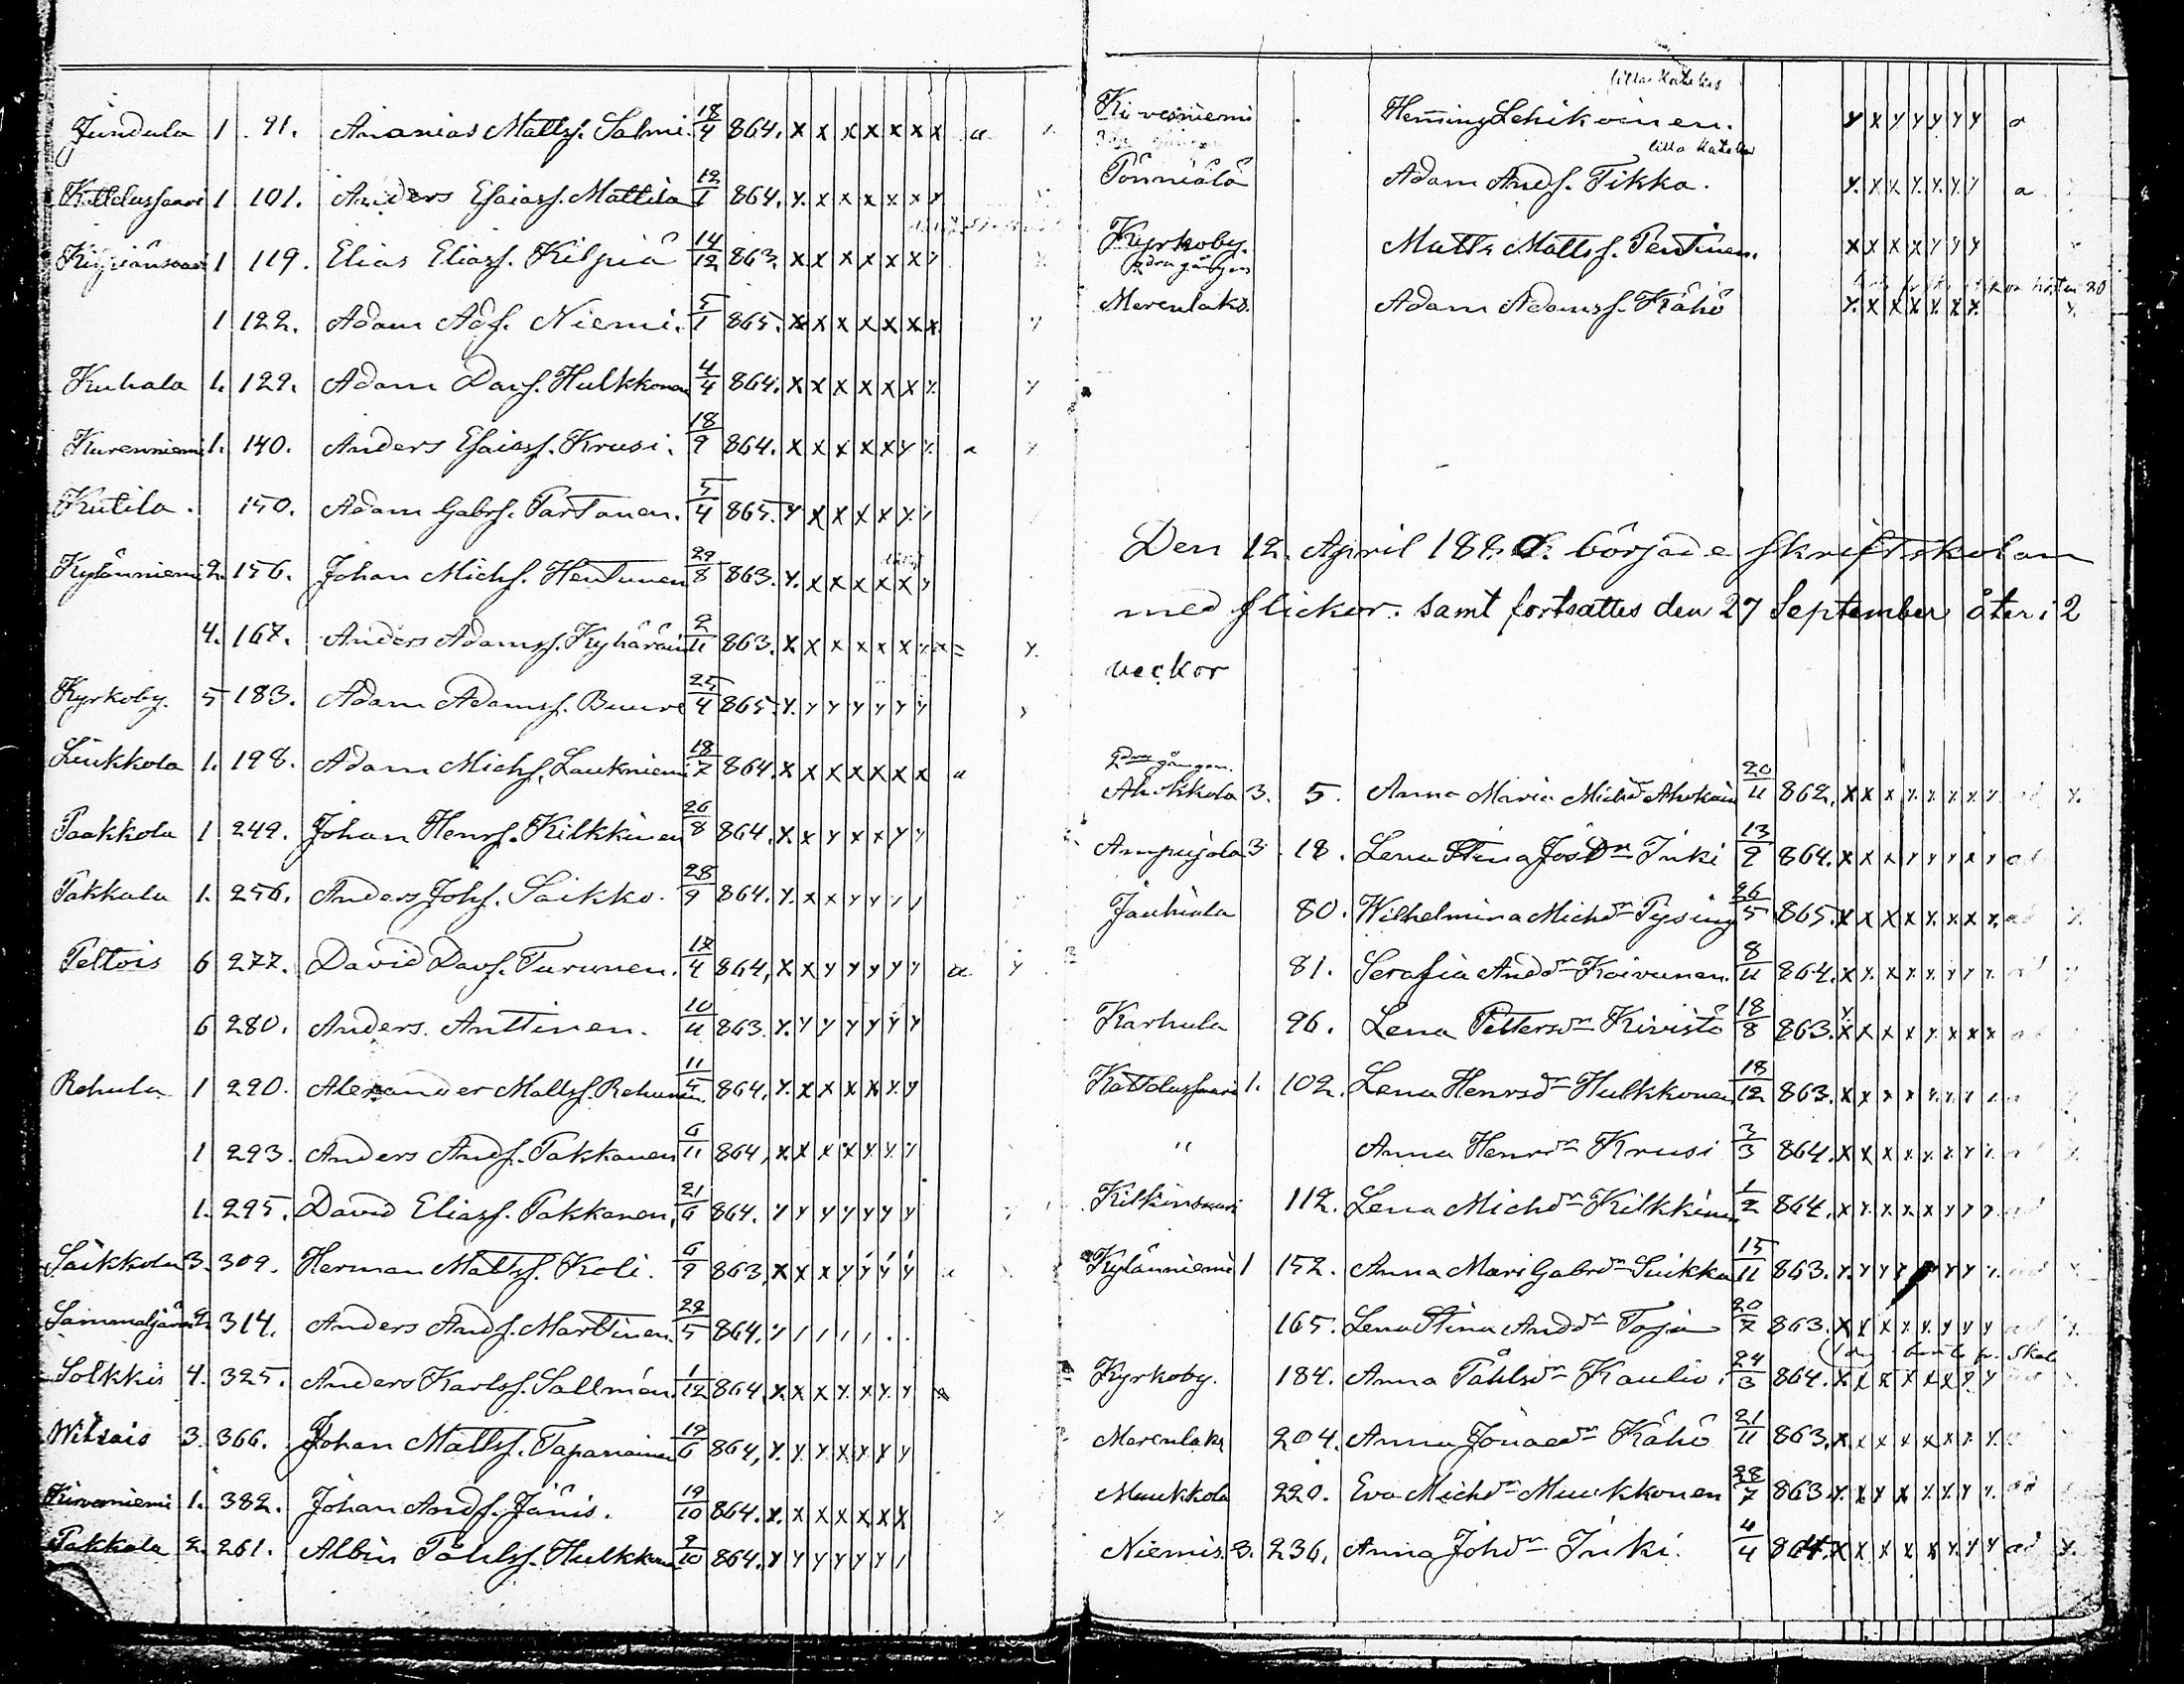 Jundula 1 91. Ananias Mattsf. Salmi 18/4 864. x x x x x x x a
Kattelussaari 1 101. Anders Esaiasf. Mattila 12/1 864. x x x x x x x
Kilpiänsaari 1 119. Elias Eliasf. Kilpiä 14/12 863. x x x x x x x
1 122. Adam Adf. Niemi. 5/1 865. x x x x x x x
Kuhala 1. 129. Adam Davf. Hulkkonen 4/4 864. x x x x x x x
Kurenniemi 1. 140. Anders Esaiasf. Krusi. 18/9 864. x x x x x x x a
Kutila. 150. Adam Gabrf. Partanen. 5/4 865. x x x x x x x
Kylänniemi 2. 156. Johan Michf. Hentunen 29/8 863. x x x x x x x
4. 167. Anders Adamsf. Kyhäräin 2/11 863. x x x x x x x
Kyrkoby. 5 183. Adam Adamsf. Buure 25/4 865. x x x x x x x
Liukkola 1. 198. Adam Michf. Laukniemi 18/7 864. x x x x x x x a
Paakkola 1 249. Johan Henrf. Kilkkinen 26/8 864. x x x x x x x
Pakkala 1. 256. Anders Johf. Saikko. 28/9 864. x x x x x x x
Peltois 6 277. David Davf. Turunen. 17/4 864, x x x x x x x a
6 280. Anders. Anttinen. 10/11 863. x x x x x x x
Rehula 1 290. Alexander Mattsf. Rehunen. 11/4 864. x x x x x x x
1 293. Anders Andf. Pakkanen 6/11 864, x x x x x x x
1. 295. David Eliasf. Pakkanen, 21/6 864. x x x x x x x
Saikkola 3. 309. Herman Mattsf. Koli. 6/9 863, x x x x x x x
2. 314. Anders Andf. Marttinen. 22/5 864.
Solkkis 4. 325. Anders Karlsf. Sallmén. 1/12 864, x x x x x x x
Witsais 3. 366. Johan Mattsf. Tapanainen 12/6 864, x x x x x x x
Kirvesniemi 1. 382. Johan Andf. Jänis. 19/10 864. x x x x x x x
Pakkala 2. 261. Albin Påhlsf. Hulkkonen 9/10 864. x x x x x x x
lilla Kateches
Kirvesniemi Hemming Lehikoinen. x x x x x x x a
lilla Kateches
Pönniälä Adam Andf. Tikka. x x x x x x x a
Kyrkoby. Matts Mattsf. Pentinen. x x x x x x x
2dra gången
Merenlaks. Adam Adamsf. Kähö x x x x x x x
Den 12. April 1880. började skriftskolan
med flickor. samt fortsattes den 27 September åter i 2
veckor
2dra gången.
Ahokkola 3. 5. Anna Maria Michdr Ahokain 20/11 862. x x x x x x x x
Ampujala 3 18. Lena Stina Josdr Inki 13/9 864. x x x x x x x x
Jauhiala 80. Wilhelmina Michdr Pysing 26/5 865. x x x x x x x x
81. Serafia Anddr Koivunen. 8/11 864. x x x x x x x x
Karhula 96. Lena Pettersdr Kivistö 18/8 863. x x x x x x x x
Kattelussaari 1. 102. Lena Henrsdr Hulkkonen 18/12 863. x x x x x x x x
" Anna Henrdr Krusi 3/3 864. x x x x x x x x
Kilkinsaari 112. Lena Michdr Kilkkinen 1/2 864. x x x x x x x x
Kylänniemi 1 152. Anna Mari Gabrdr Suikka 15/11 863. x x x x x x x x
165. Lena Stina Anddr Toja 20/7 863. x x x x x x x x
Kyrkoby. 184. Anna Påhlsdr Kaulio. 24/3 864. x x x x x x x x
Merenlaks 204. Anna Jonaedr Kähö 21/11 863. x x x x x x x x
Muukkola 220. Eva Michdr Muukkonen 28/7 863. x x x x x x x x
Niemis. 3. 236. Anna Johdr Inki. 4/4 864. x x x x x x x x ad x.